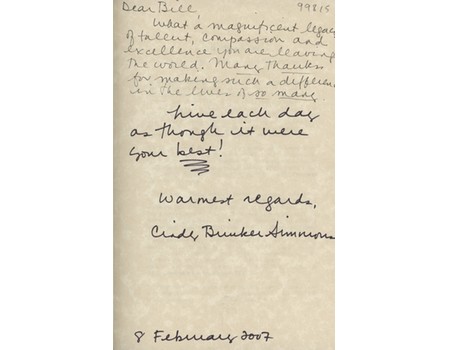 Dear Bill 99815
What a magnificent legacy
of talent, compassion and
excellence you are leaving
the world. Many thanks
for making such a differen
in the lives of so many.
Live each day
as though it were
your best!
Warmest regards,
Cindy Brinker Simmons
8 February 2007